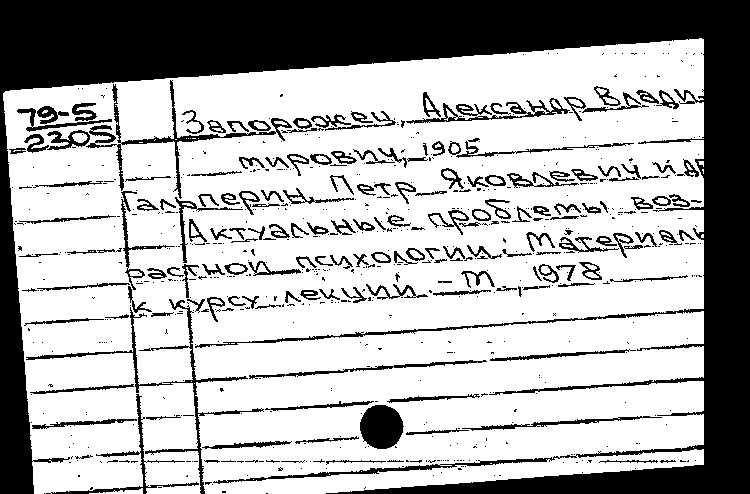 79-5
2305
Запорожец, Александр Влади-
мирович, 1905
Гальперин, Петр Яковлевич и др
Актуальные проблемы воз-
растной психологии: Материалы
к курсу лекций. - М., 1978